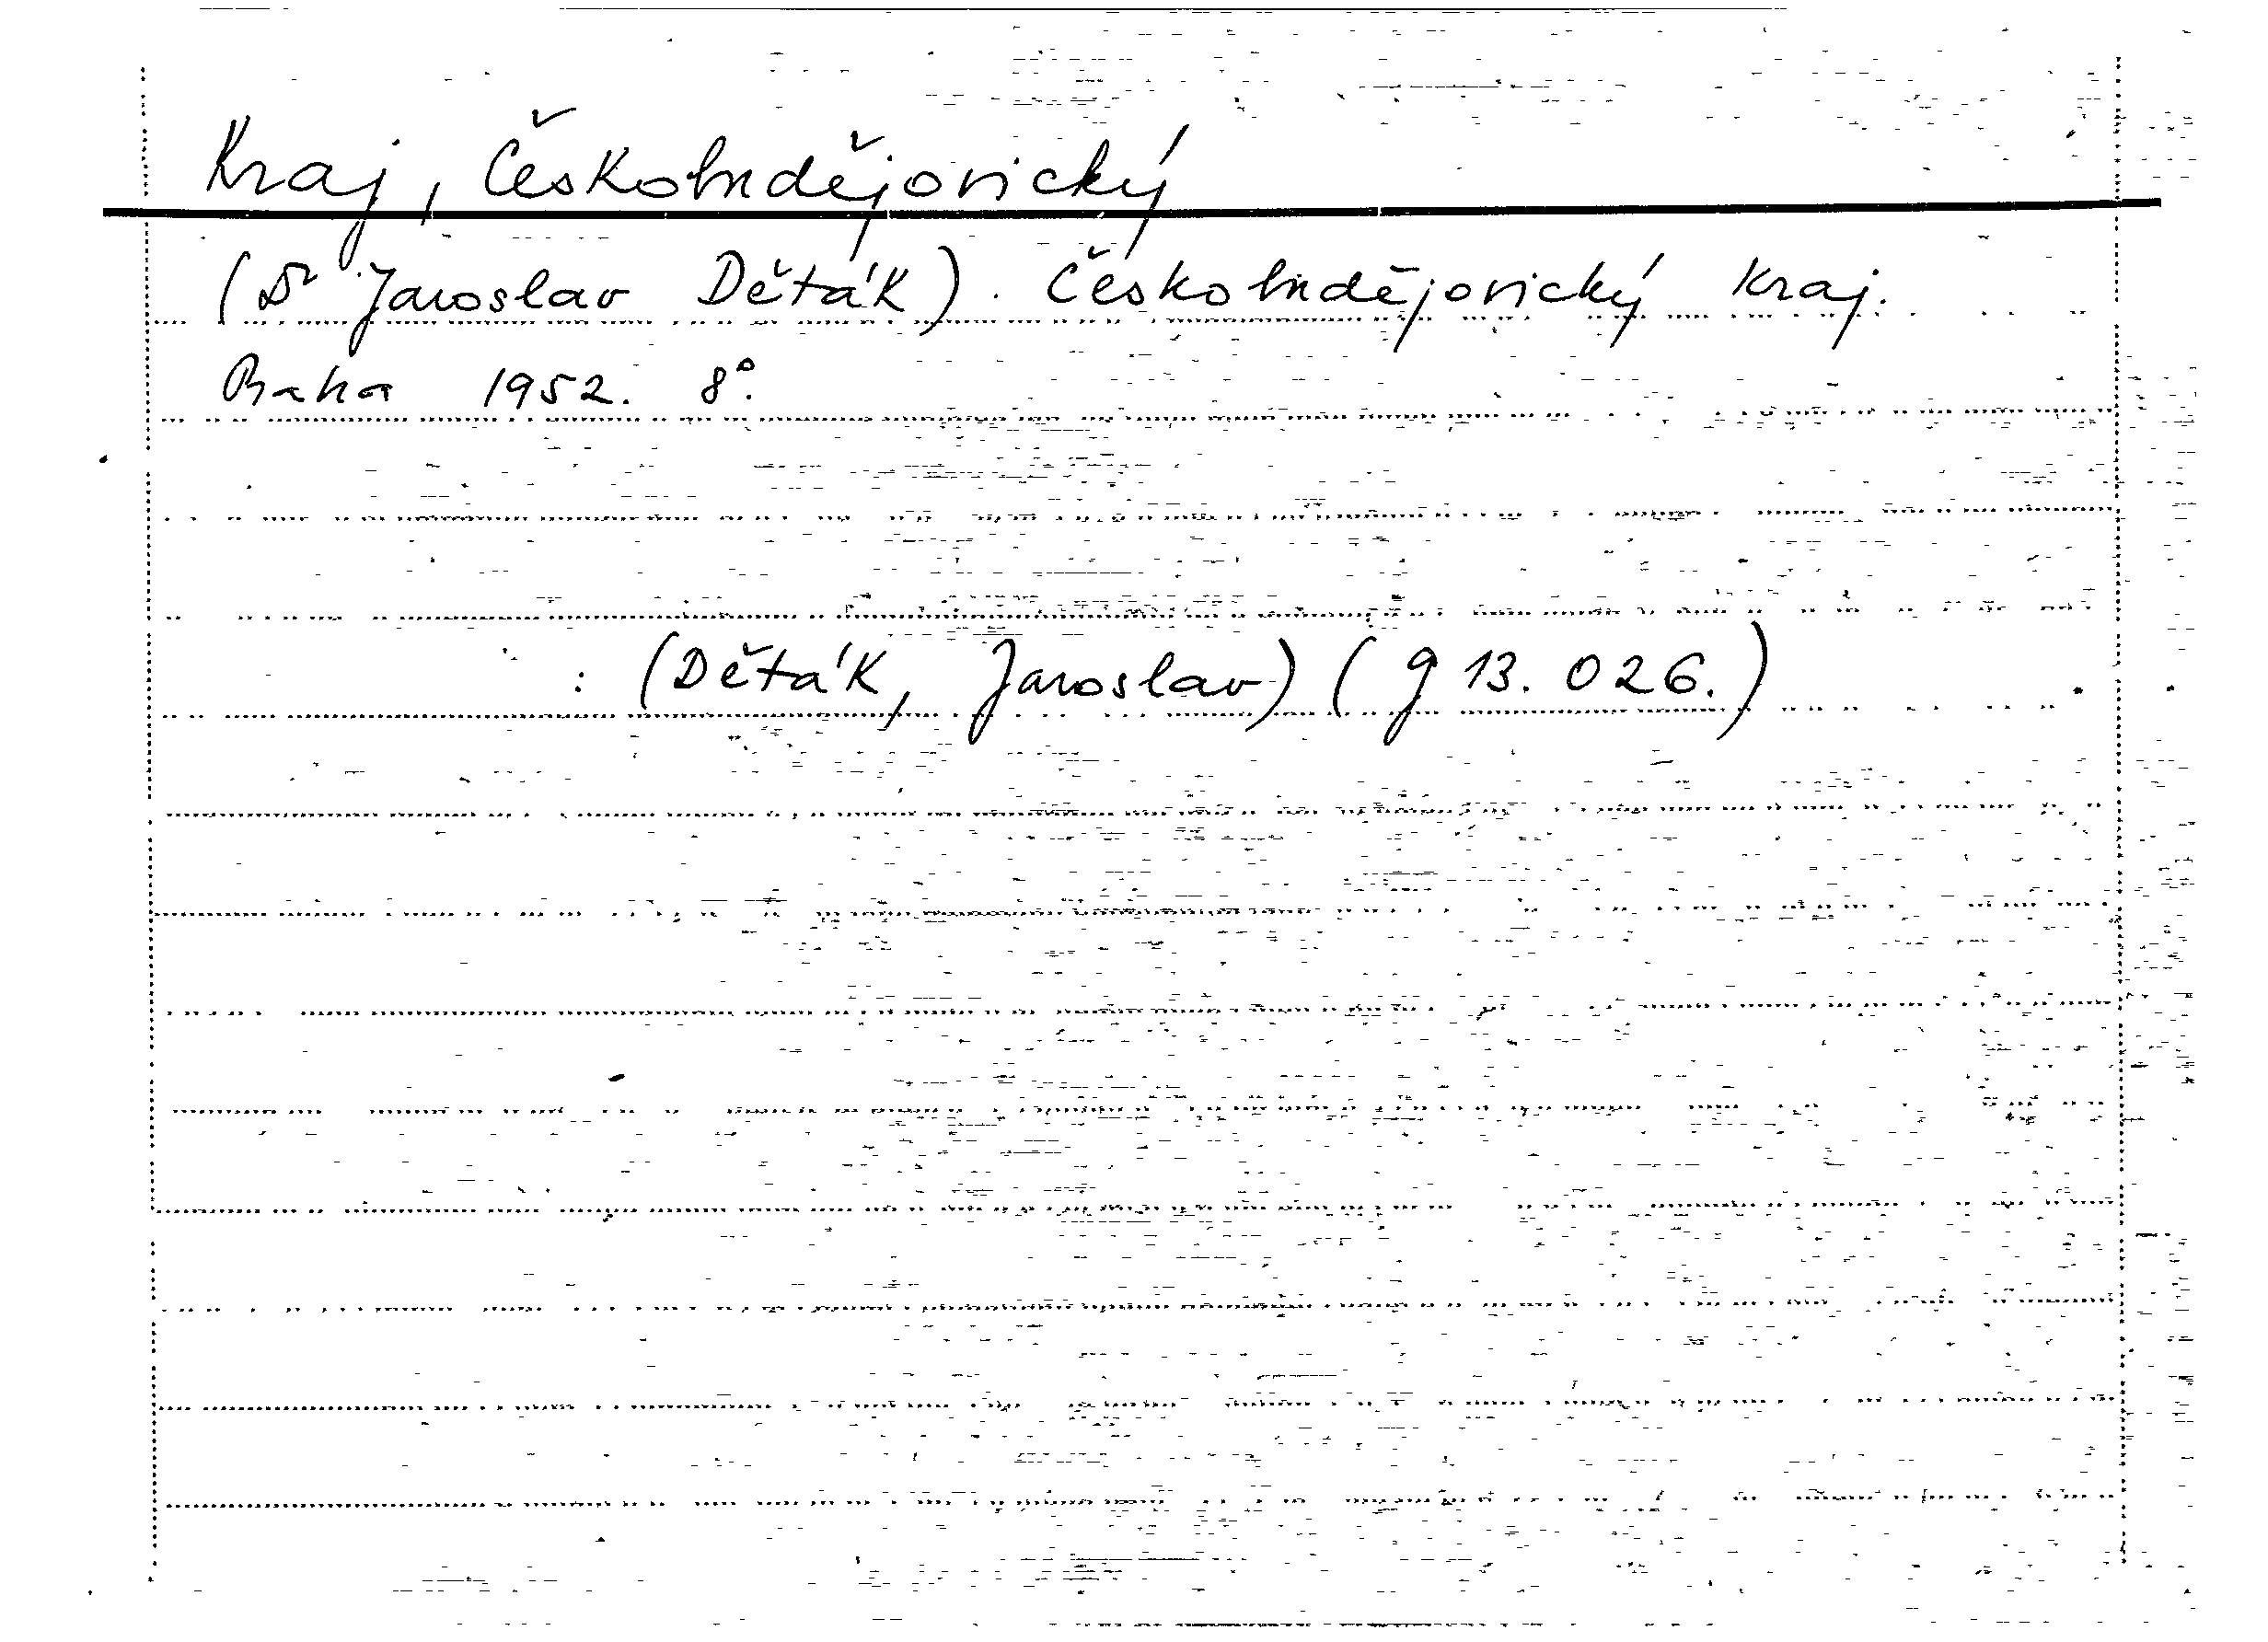 Kraj, Českobudějovický
(Dr Jaroslav Děták). Českobudějovický Kraj.
Praha 1952. 8°.
: (Děták, Jaroslav) (g 13.026.)